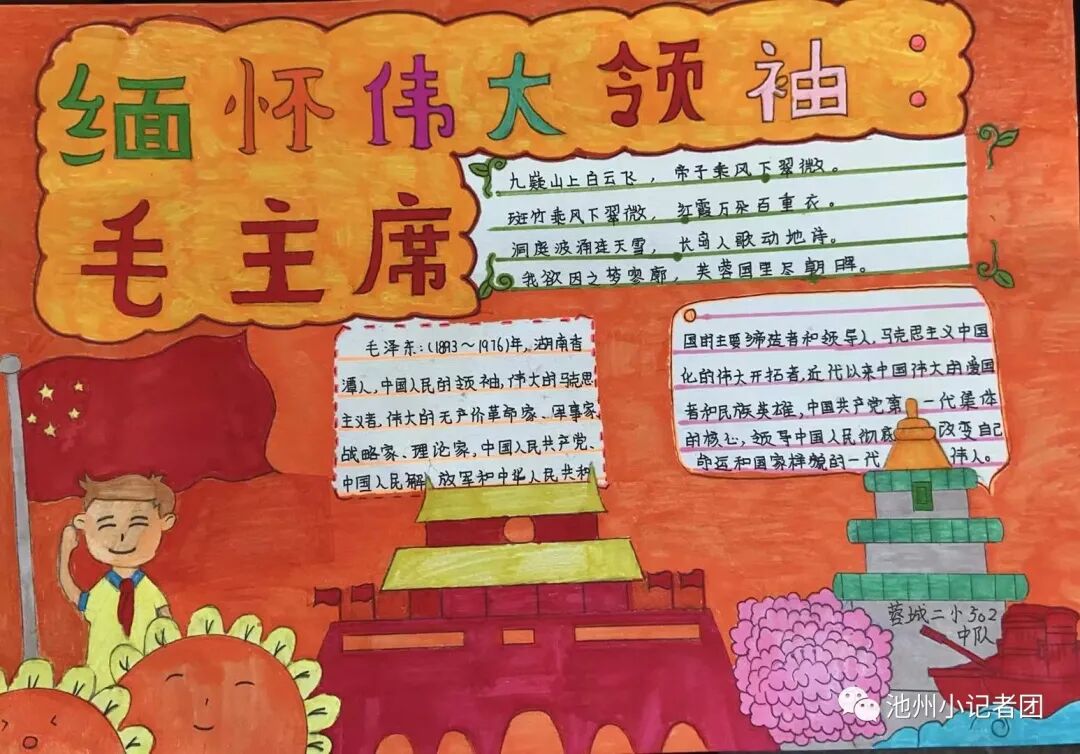 缅怀伟大领袖：
毛主席
九嶷山上白云飞，帝子乘风下翠微。
斑竹乘风下翠微，红霞万朵百重衣。
洞庭波涌连天雪，长岛人歌动地诗。
我欲因之梦寥廓，芙蓉国里尽朝晖。
毛泽东：(1893～1976)年，湖南省
潭人，中国人民的领袖，伟大的马克思
主义者，伟大的无产阶革命家、军事家
战略家、理论家，中国人民共产党、
中国人民解放军和中华人民共和
国的主要缔造者和领导人，马克思主义中国
化的伟大开拓者，近代以来中国伟大的爱国
者和民族英雄，中国共产党第一代集体
的核心，领导中国人民彻底改变自己
命运和国家样貌的一代伟人。
蓉城二小502
中队
池州小记者团